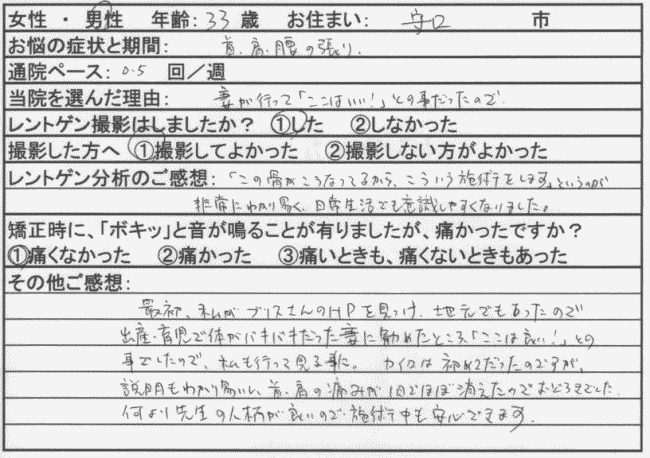 女性 ・ 男性 年齢: 33 歳 お住まい: 守口 市
お悩の症状と期間: 首、肩、腰の張り.
通院ペース: 0.5 回／週
当院を選んだ理由: 妻が行って「ここはいい!」との事だったので.
レントゲン撮影はしましたか? ①した ②しなかった
撮影した方へ ①撮影してよかった ②撮影しない方がよかった
レントゲン分析のご感想: 「この骨がこうなってるから、こういう施術をします」というのが
非常にわかり易く、日常生活でも意識しやすくなりました。
矯正時に、「ボキッ」と音が鳴ることが有りましたが、痛かったですか?
①痛くなかった ②痛かった ③痛いときも、痛くないときもあった
その他ご感想:
最初、私がブリスさんのHPを見つけ、地元でもあったので
出産・育児で体がバキバキだった妻に勧めたところ「ここは良い!」との
事でしたので、私も行って見る事に。 カイロは初めてだったのですが、
説明もわかり易いし、首、肩の痛みが1回でほぼ消えたのでおどろきでした.
何より先生の人柄が良いので施術中も安心できます.